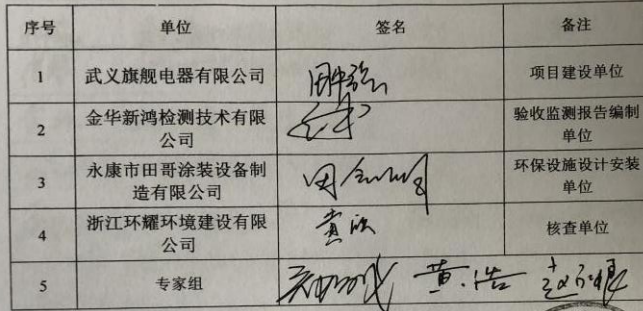 序号 单位 签名 备注
1 武义旗舰电器有限公司 项目建设单位
2 金华新鸿检测技术有限公司 验收监测报告编制单位
3 永康市田哥涂装设备制造有限公司 环保设施设计安装单位
4 浙江环耀环境建设有限公司 黄欣 核查单位
5 专家组 黄浩